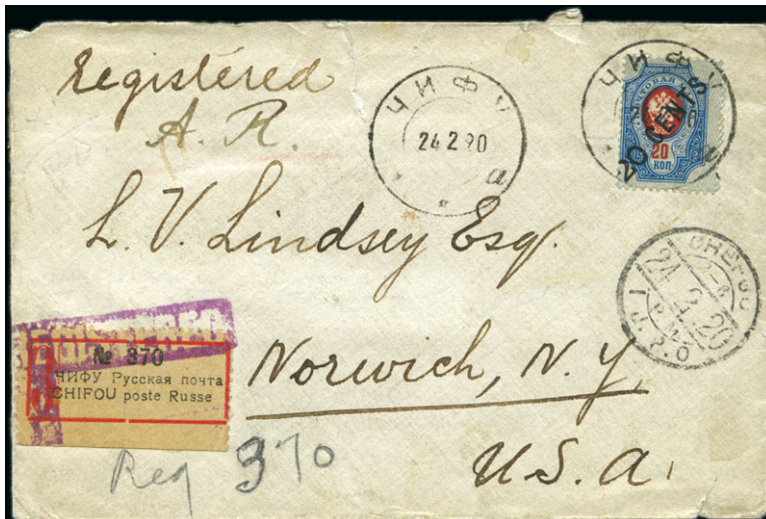 Registered
A. R.
ЧИФУ
24 2 90
а
ЧИФУ
а
ПОЧТОВАЯ
20 CENTS
20
КОП
L. V. Lindsey Esq.
CHEFOO
24. 2. 20
I. J. P. O
№ 370
ЧИФУ Русская почта
CHIFOU poste Russe
Norwich, N. Y.
U. S. A.
Reg 370